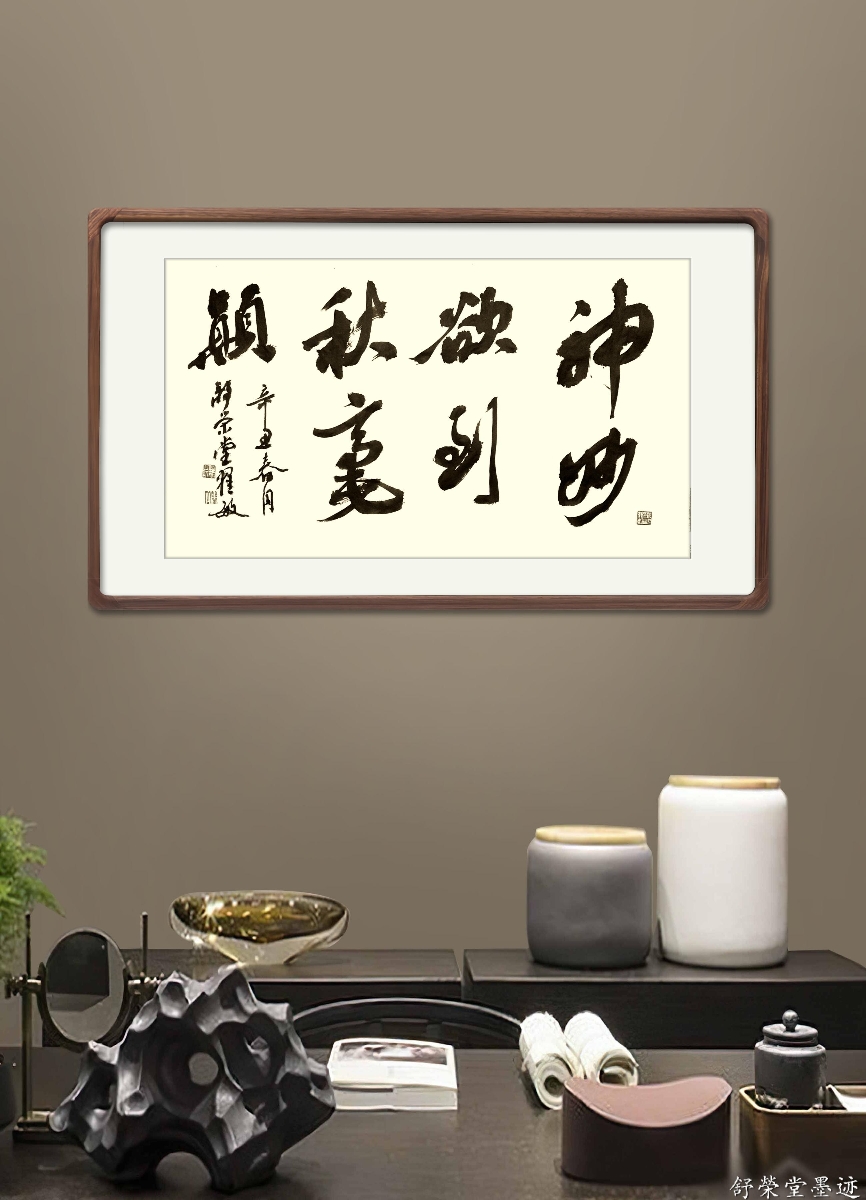 神妙
欲到
秋毫
顛
辛丑春月
舒荣堂耀敏
舒榮堂墨迹